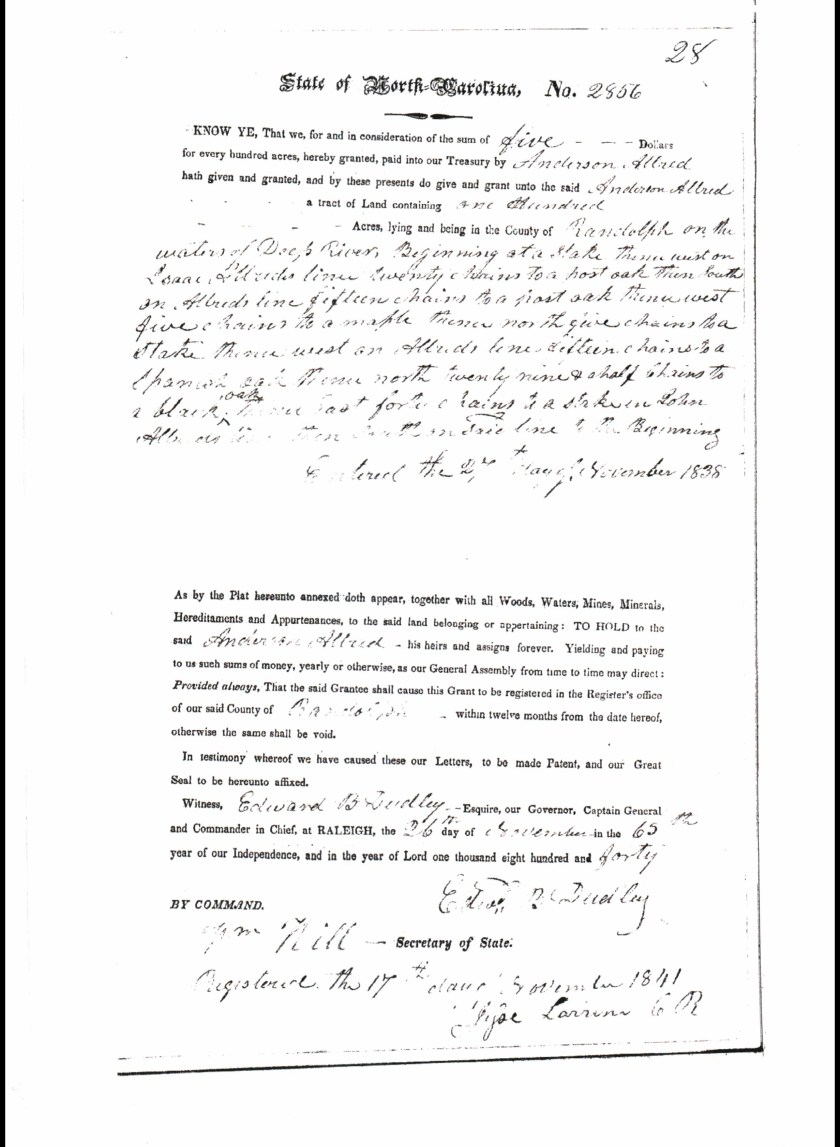 28
State of North-Carolina, No. 2856
KNOW YE, That we, for and in consideration of the sum of five - - - Dollars
for every hundred acres, hereby granted, paid into our Treasury by Anderson Allred
hath given and granted, and by these presents do give and grant unto the said Anderson Allred
a tract of Land containing one Hundred
Acres, lying and being in the County of Randolph on the
waters of Deep River, Beginning at a Stake thence west on
Isaac Allreds line twenty chains to a post oak then South
on Allreds line fifteen chains to a post oak thence west
five chains to a maple thence north five chains to a
Stake thence west on Allreds line fifteen chains to a
Spanish oak thence north twenty nine & a half Chains to
a black oak thence East forty chains to a stake in John
Allreds line then South on line to the Beginning
Entered the 27th day of November 1838
As by the Plat hereunto annexed doth appear, together with all Woods, Waters, Mines, Minerals,
Hereditaments and Appurtenances, to the said land belonging or appertaining: TO HOLD to the
said Anderson Allred - his heirs and assigns forever. Yielding and paying
to us such sums of money, yearly or otherwise, as our General Assembly from time to time may direct:
Provided always, That the said Grantee shall cause this Grant to be registered in the Register's office
of our said County of Randolph - within twelve months from the date hereof,
otherwise the same shall be void.
In testimony whereof we have caused these our Letters, to be made Patent, and our Great
Seal to be hereunto affixed.
Witness, Edward B Dudley - Esquire, our Governor, Captain General
and Commander in Chief, at RALEIGH, the 26th day of November in the 65th
year of our Independence, and in the year of Lord one thousand eight hundred and forty
Edwd B Dudley
BY COMMAND.
Wm Hill - Secretary of State.
Registered the 17th day November 1841
C R